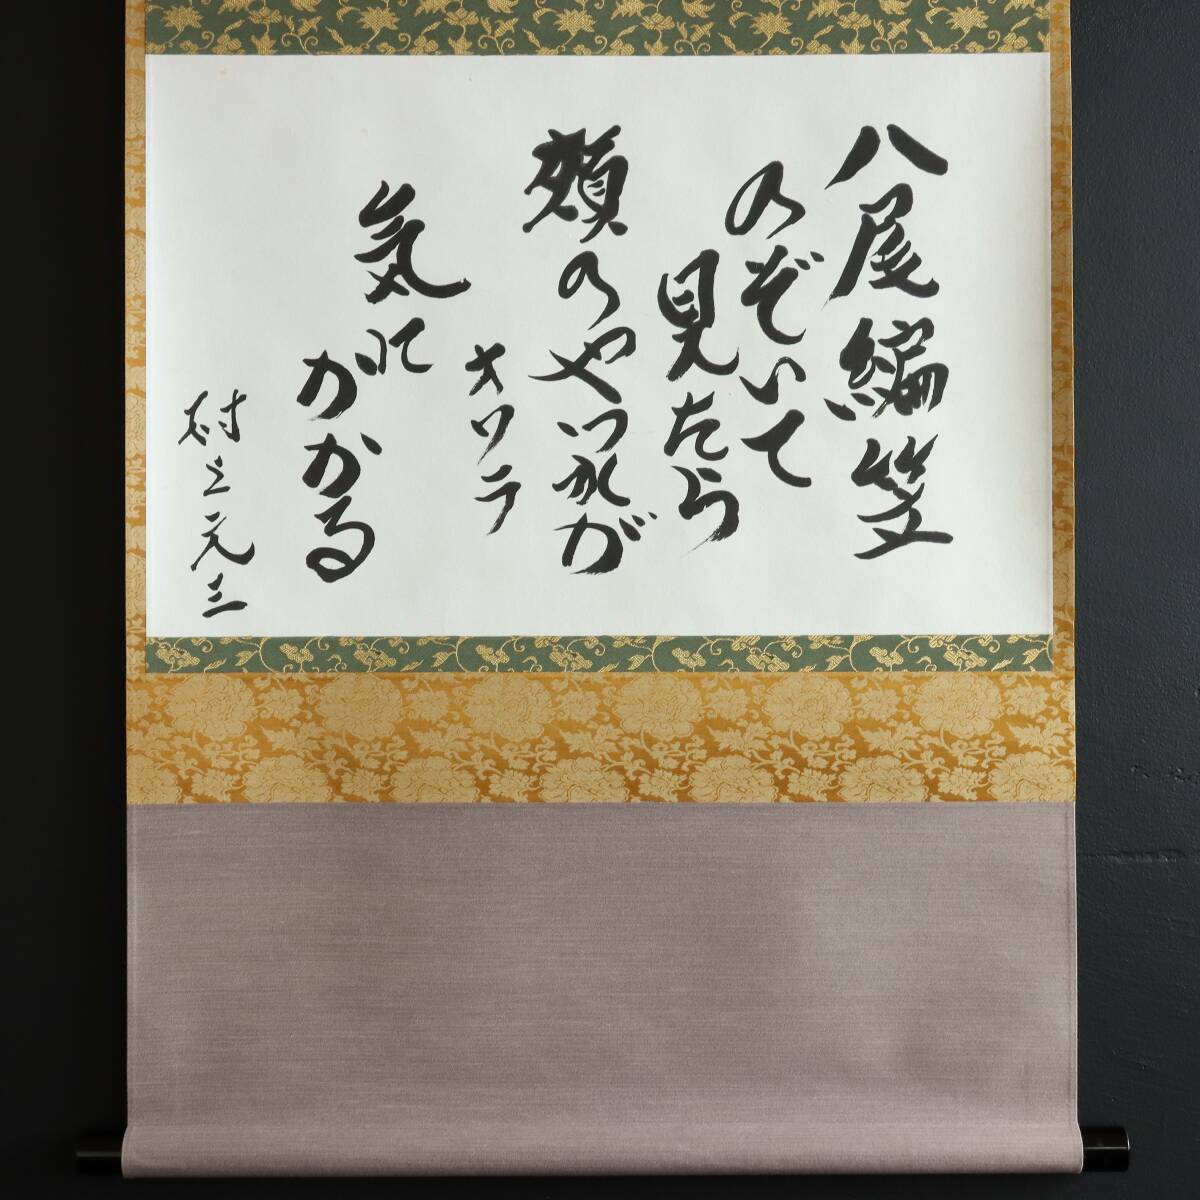 八尾編笠
のぞいて
見たら
頬のやつれが
オワラ
気に
がかる
村上元三